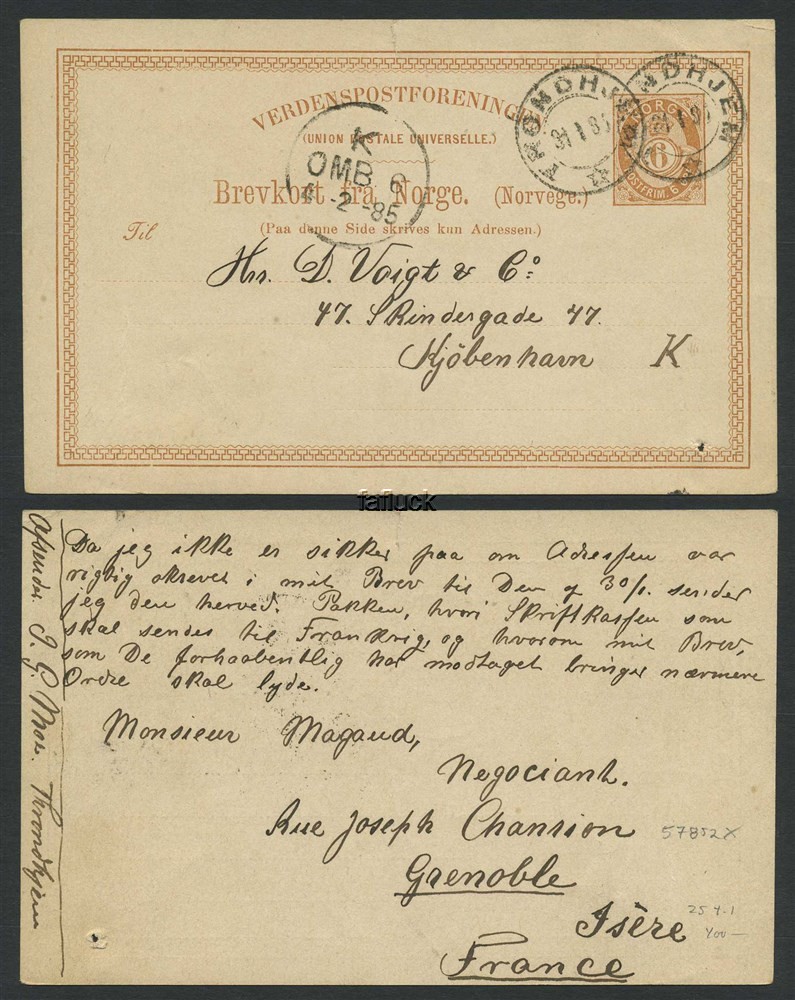 VERDENSPOSTFORENINGEN
(UNION POSTALE UNIVERSELLE.)
Brevkort fra Norge. (Norvege.)
(Paa denne Side skrives kun Adressen.)
TRONDHJEM
31 1 85
TRONDHJEM
31 1 85
NORGE
6
POSTFRIM. 6
K
OMB. 6
1 -2 -85
Til
Hrr. D. Voigt & Co:
47. Skindergade 47.
Kjöbenhavn
K
fafluck
Da jeg ikke er sikker paa om Adressen var
rigtig skrevet i mit Brev til Dem af 30/1. sender
jeg den herved. Pakken, hvori Skriftkassen som
skal sendes til Frankrig, og hvorom mit Brev,
som De forhaabentlig har modtaget bringer nærmere
Ordre skal lyde.
Monsieur Magaud,
Negociant.
Rue Joseph Chanrion
Grenoble
Isère
France
Afsender J. G. Moe. Throndhjem
57852X
25 4-1
400 —